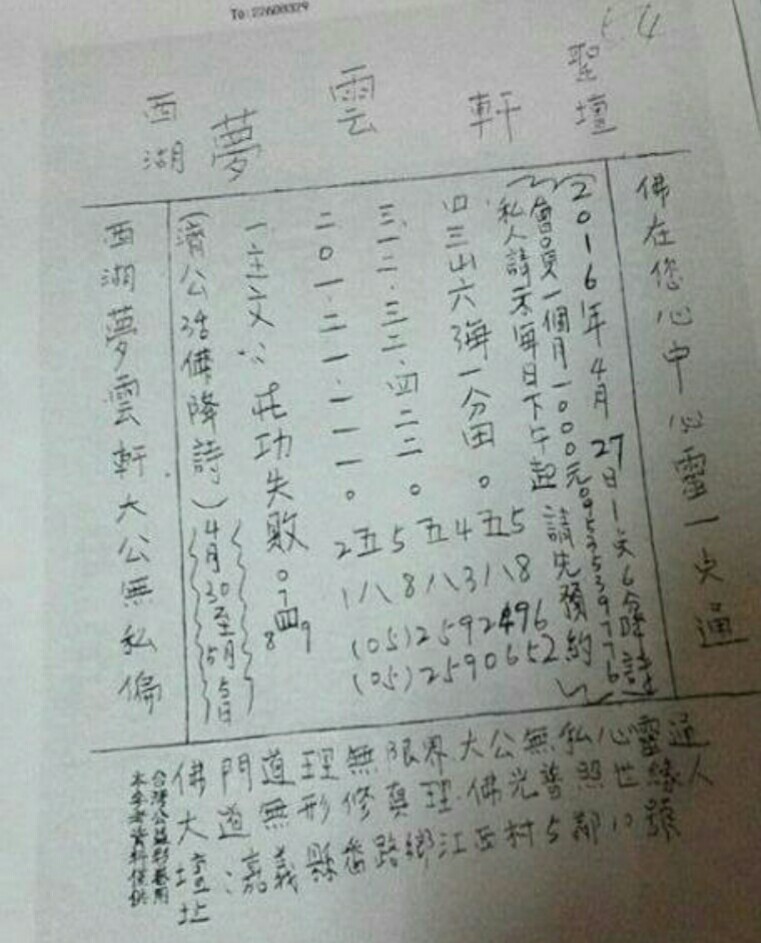 To:22600329
64
西湖夢雲軒聖壇
佛在您心中心靈一点通
(2016年4月27日1文6分降詩)
會員一個月1000元0953539776
私人請示每日下午起請先預約
四三山六海一分田。五5
三一二.三二.四二二。五4
二〇一.二一.一一一。2五5
1八8八3八8
(05)2592496
(05)2590652
一主文:莊功失敗。
07四9
8
(濟公活佛降詩)
4月30至5月5日
西湖夢雲軒大公無私偏
佛門道理無限界.大公無私心靈通
大道無形修真理.佛光普照世緣人
壇址:嘉義縣番路鄉江西村5鄰10號
台灣公益彩券用
本參考資料提供